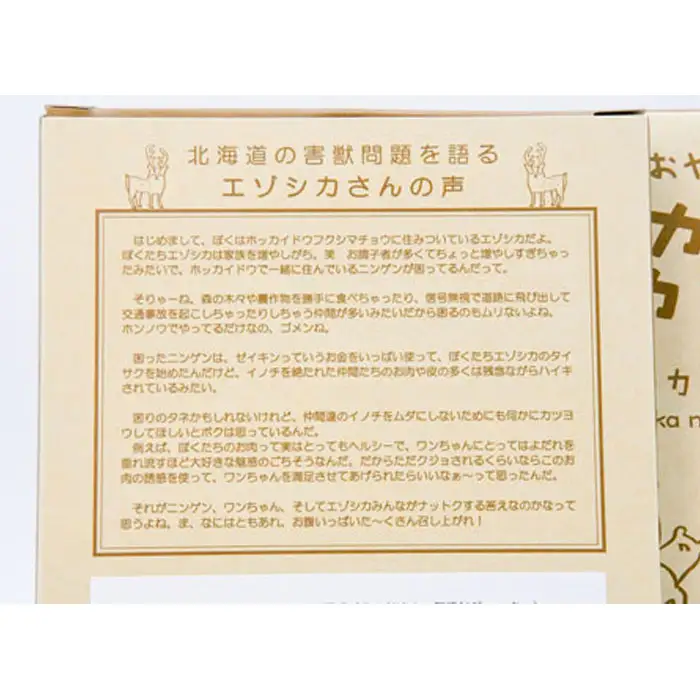 北海道の害獣問題を語る
エゾシカさんの声
はじめまして、ぼくはホッカイドウフクシマチョウに住みついているエゾシカだよ。
ぼくたちエゾシカは家族を増やしがち。笑　お調子者が多くてちょっと増やしすぎちゃっ
たみたいで、ホッカイドウで一緒に住んでいるニンゲンが困ってるんだって。
そりゃーね、森の木々や農作物を勝手に食べちゃったり、信号無視で道路に飛び出して
交通事故を起こしちゃったりしちゃう仲間が多いみたいだから困るのもムリないよね。
ホンノウでやってるだけなの、ゴメンね。
困ったニンゲンは、ゼイキンっていうお金をいっぱい使って、ぼくたちエゾシカのタイ
サクを始めたんだけど、イノチを絶たれた仲間たちのお肉や皮の多くは残念ながらハイキ
されているみたい。
困りのタネかもしれないけれど、仲間達のイノチをムダにしないためにも何かにカツヨ
ウしてほしいとボクは思っているんだ。
例えば、ぼくたちのお肉って実はとってもヘルシーで、ワンちゃんにとってはよだれを
垂れ流すほど大好きな魅惑のごちそうなんだ。だからただクジョされるくらいならこのお
肉の誘惑を使って、ワンちゃんを満足させてあげられたらいいなぁ～って思ったんだ。
それがニンゲン、ワンちゃん、そしてエゾシカみんながナットクする答えなのかなって
思うよね。ま、なにはともあれ。お腹いっぱいた～くさん召し上がれ！
おや
カ
カ
ka n